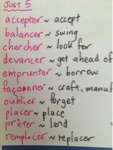 JUST 5
accepter ~ accept
balancer ~ swing
chercher ~ look for
devancer ~ get ahead of
emprunter ~ borrow
façonner ~ craft, manuf
oublier ~ forget
placer ~ place
prêter ~ lend
remplacer ~ replacer